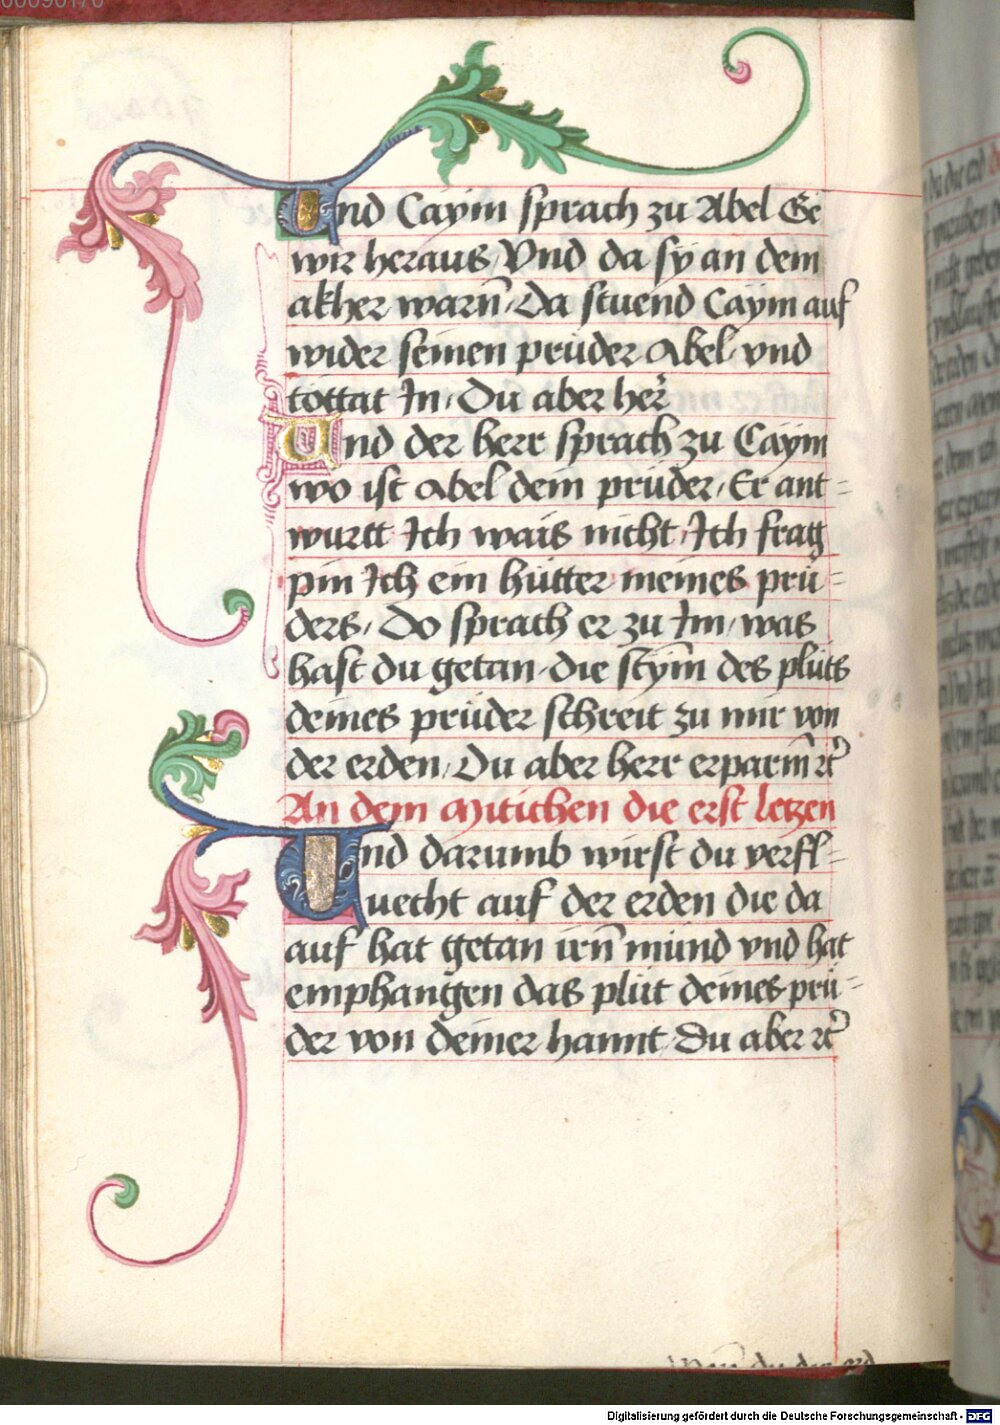 Und Caym sprach zu Abel Ge
wir heraus, Vnd da sÿ an dem
akher warn̄, Da stuend Caÿm auf
wider seinen prüder Abel, vnd
tottat In, Du aber her̄
Und der herr sprach zu Caÿm
wo ist Abel dein prüder, Er ant=
wurtt Ich wais nicht, Ich frag
pin Ich ein hütter meines prü=
ders, Do sprach er zu Im, was
hast du getan, die stÿm̄ des plüts
deines prüder schreit zu mir von
der erden, Du aber herr erparm̄ ꝛc̄
An dem Mitichen die erst letzen
Und darumb wirst du verfl=
uecht auf der erden die da
auf hat getan irn̄ mund vnd hat
emphangen das plüt deines prü=
der von deiner hannt, Du aber ꝛc̄
Digitalisierung gefördert durch die Deutsche Forschungsgemeinschaft - DFG